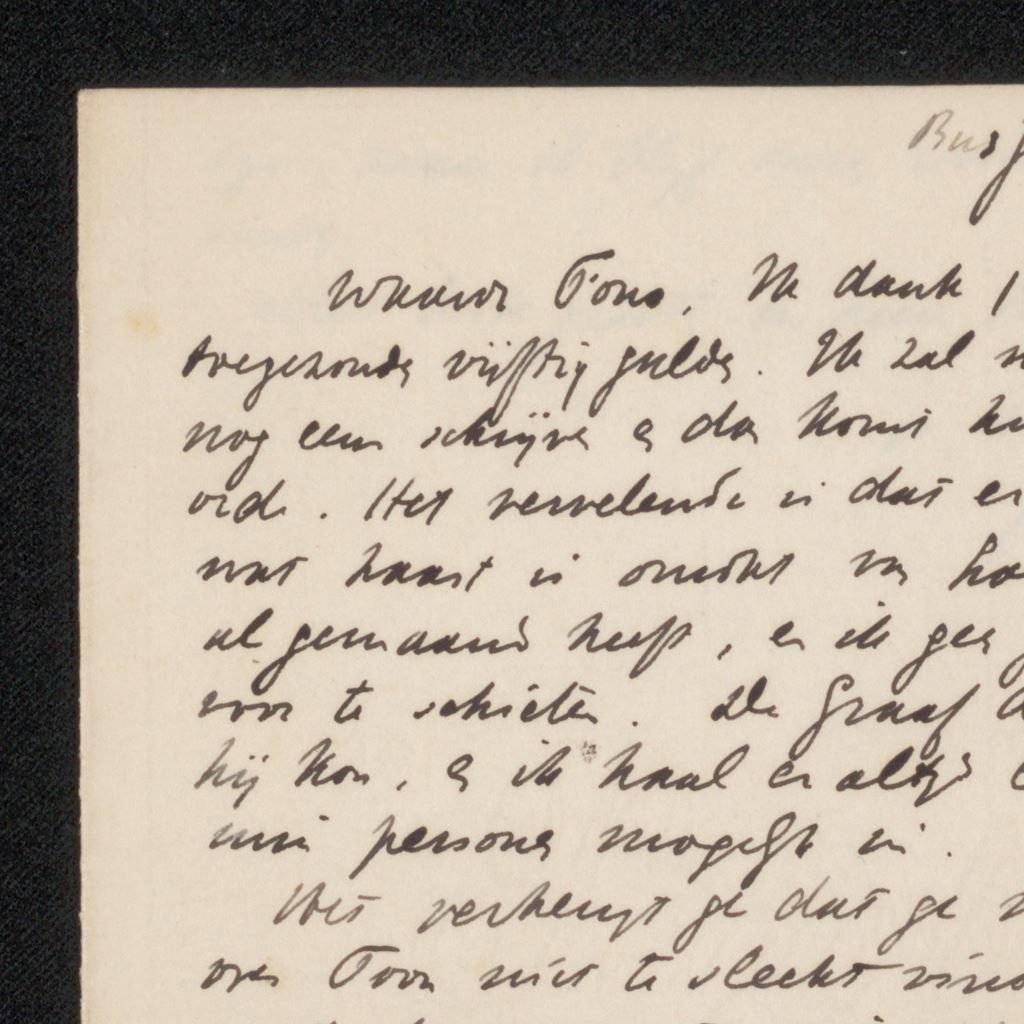 Burg
Waarde Fons, Ik dank j
toegezonden vijftig gulden. Ik zal
nog eens schrijven en dan komt
orde. Het vervelende is dat er
wat haast is omdat van
al gemaand heeft, en ik geen
voor te schieten. De Graaf
hij kon, en ik haal er altijd
mijn persoon mogelijk is.
Het verheugt ge dat ge
over Toon niet te slecht vind